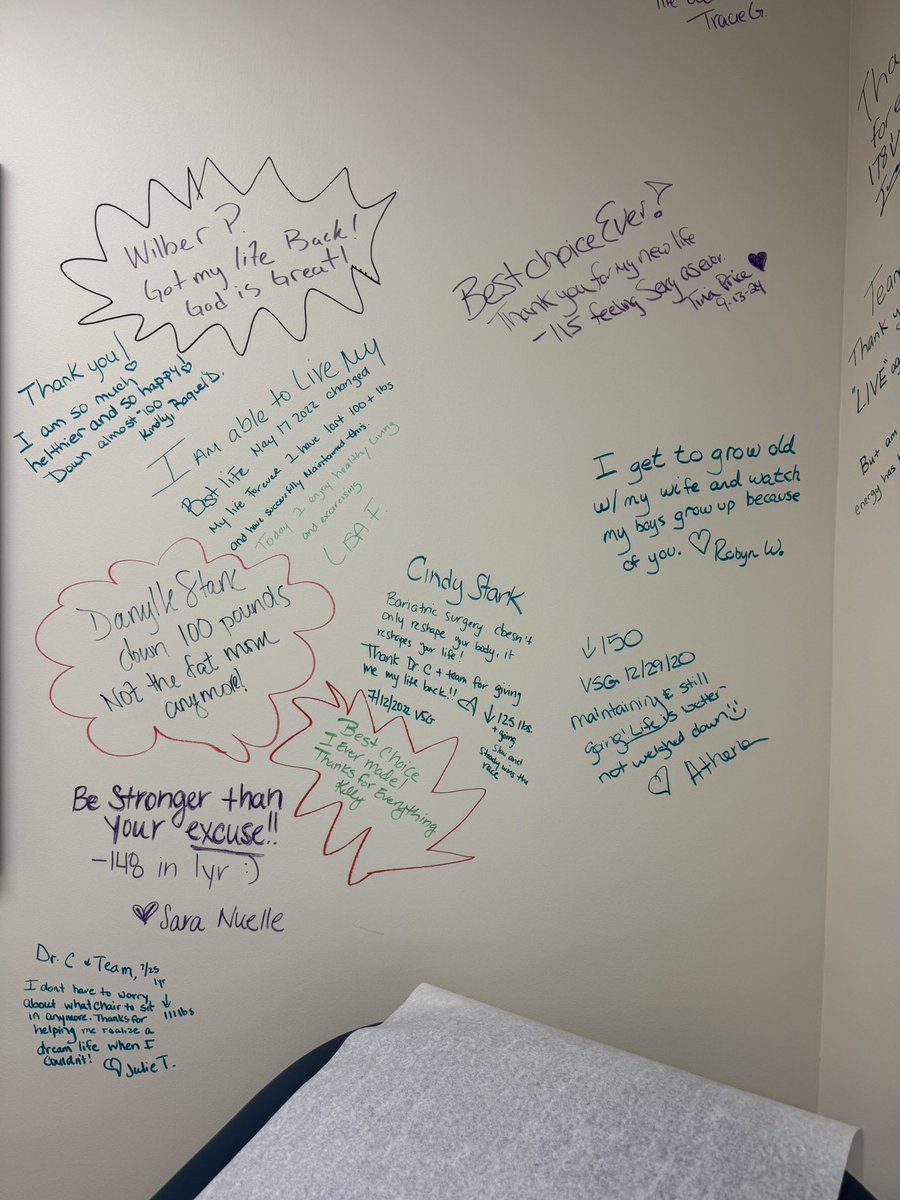 Tracie G.
Wilber P.
Got my life Back!
God is Great!
Best choice Ever!
Thank you for my new life
-115 feeling Sexy as ever.
Tina Price
9-13-24
Thank you!
I am so much
helthier and so happy!
Down almost 100
Kindly, Raquel D.
I Am able to Live My
Best life May 17 2022 changed
My life Forever I have lost 100+ lbs
and have successfully Maintained this.
Today I enjoy healthy living
and excersising
LISA F.
I get to grow old
w/ my wife and watch
my boys grow up because
of you. Robyn W.
Danylle Stark
down 100 pounds
Not the fat mom
anymore!
Cindy Stark
Bariatric surgery doesn't
only reshape your body, it
reshapes your life!
Thank Dr. C + team for giving
me my life back!!
7/12/2022 VSG
↓ 125 lbs.
+ going
Slow and
Steady wins the
race
↓150
VSG 12/29/20
maintaining & still
going! Life is better
not weighed down
Athena
Best Choice
I Ever made!
Thanks for Everything
Kelly
Be Stronger than
your excuse!!
-148 in 1yr :)
Sara Nuelle
Dr. C + Team, 7/25
1yr
↓
111 lbs
I dont have to worry
about what Chair to sit
in anymore. Thanks for
helping me realize a
dream life when I
Couldn't! Julie T.
Tha
for
178
Team
Thank y
"LIVE" ag
But am
energy has